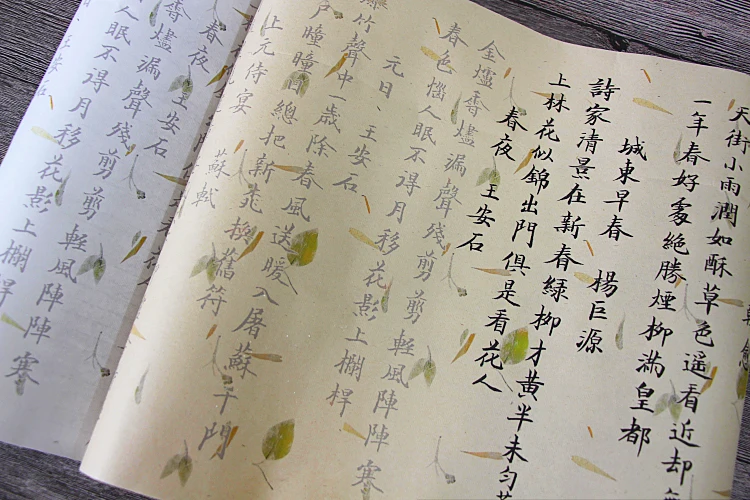 天街小雨潤如酥草色遙看近却
一年春好處絶勝煙柳滿皇都
城東早春 楊巨源
詩家清景在新春綠柳才黃半未勻
上林花似錦出門俱是看花人
春夜 王安石
金爐香燼漏聲殘剪剪輕風陣陣寒
春色惱人眠不得月移花影上欄桿
元日、王安石
竹聲中一歲除春風送暖入屠蘇千門
戶曈曈日總把新桃換舊符
上元侍宴 蘇軾
春夜 王安石
香燼漏聲殘剪剪輕風陣陣寒
人眠不得月移花影上欄桿
王安石